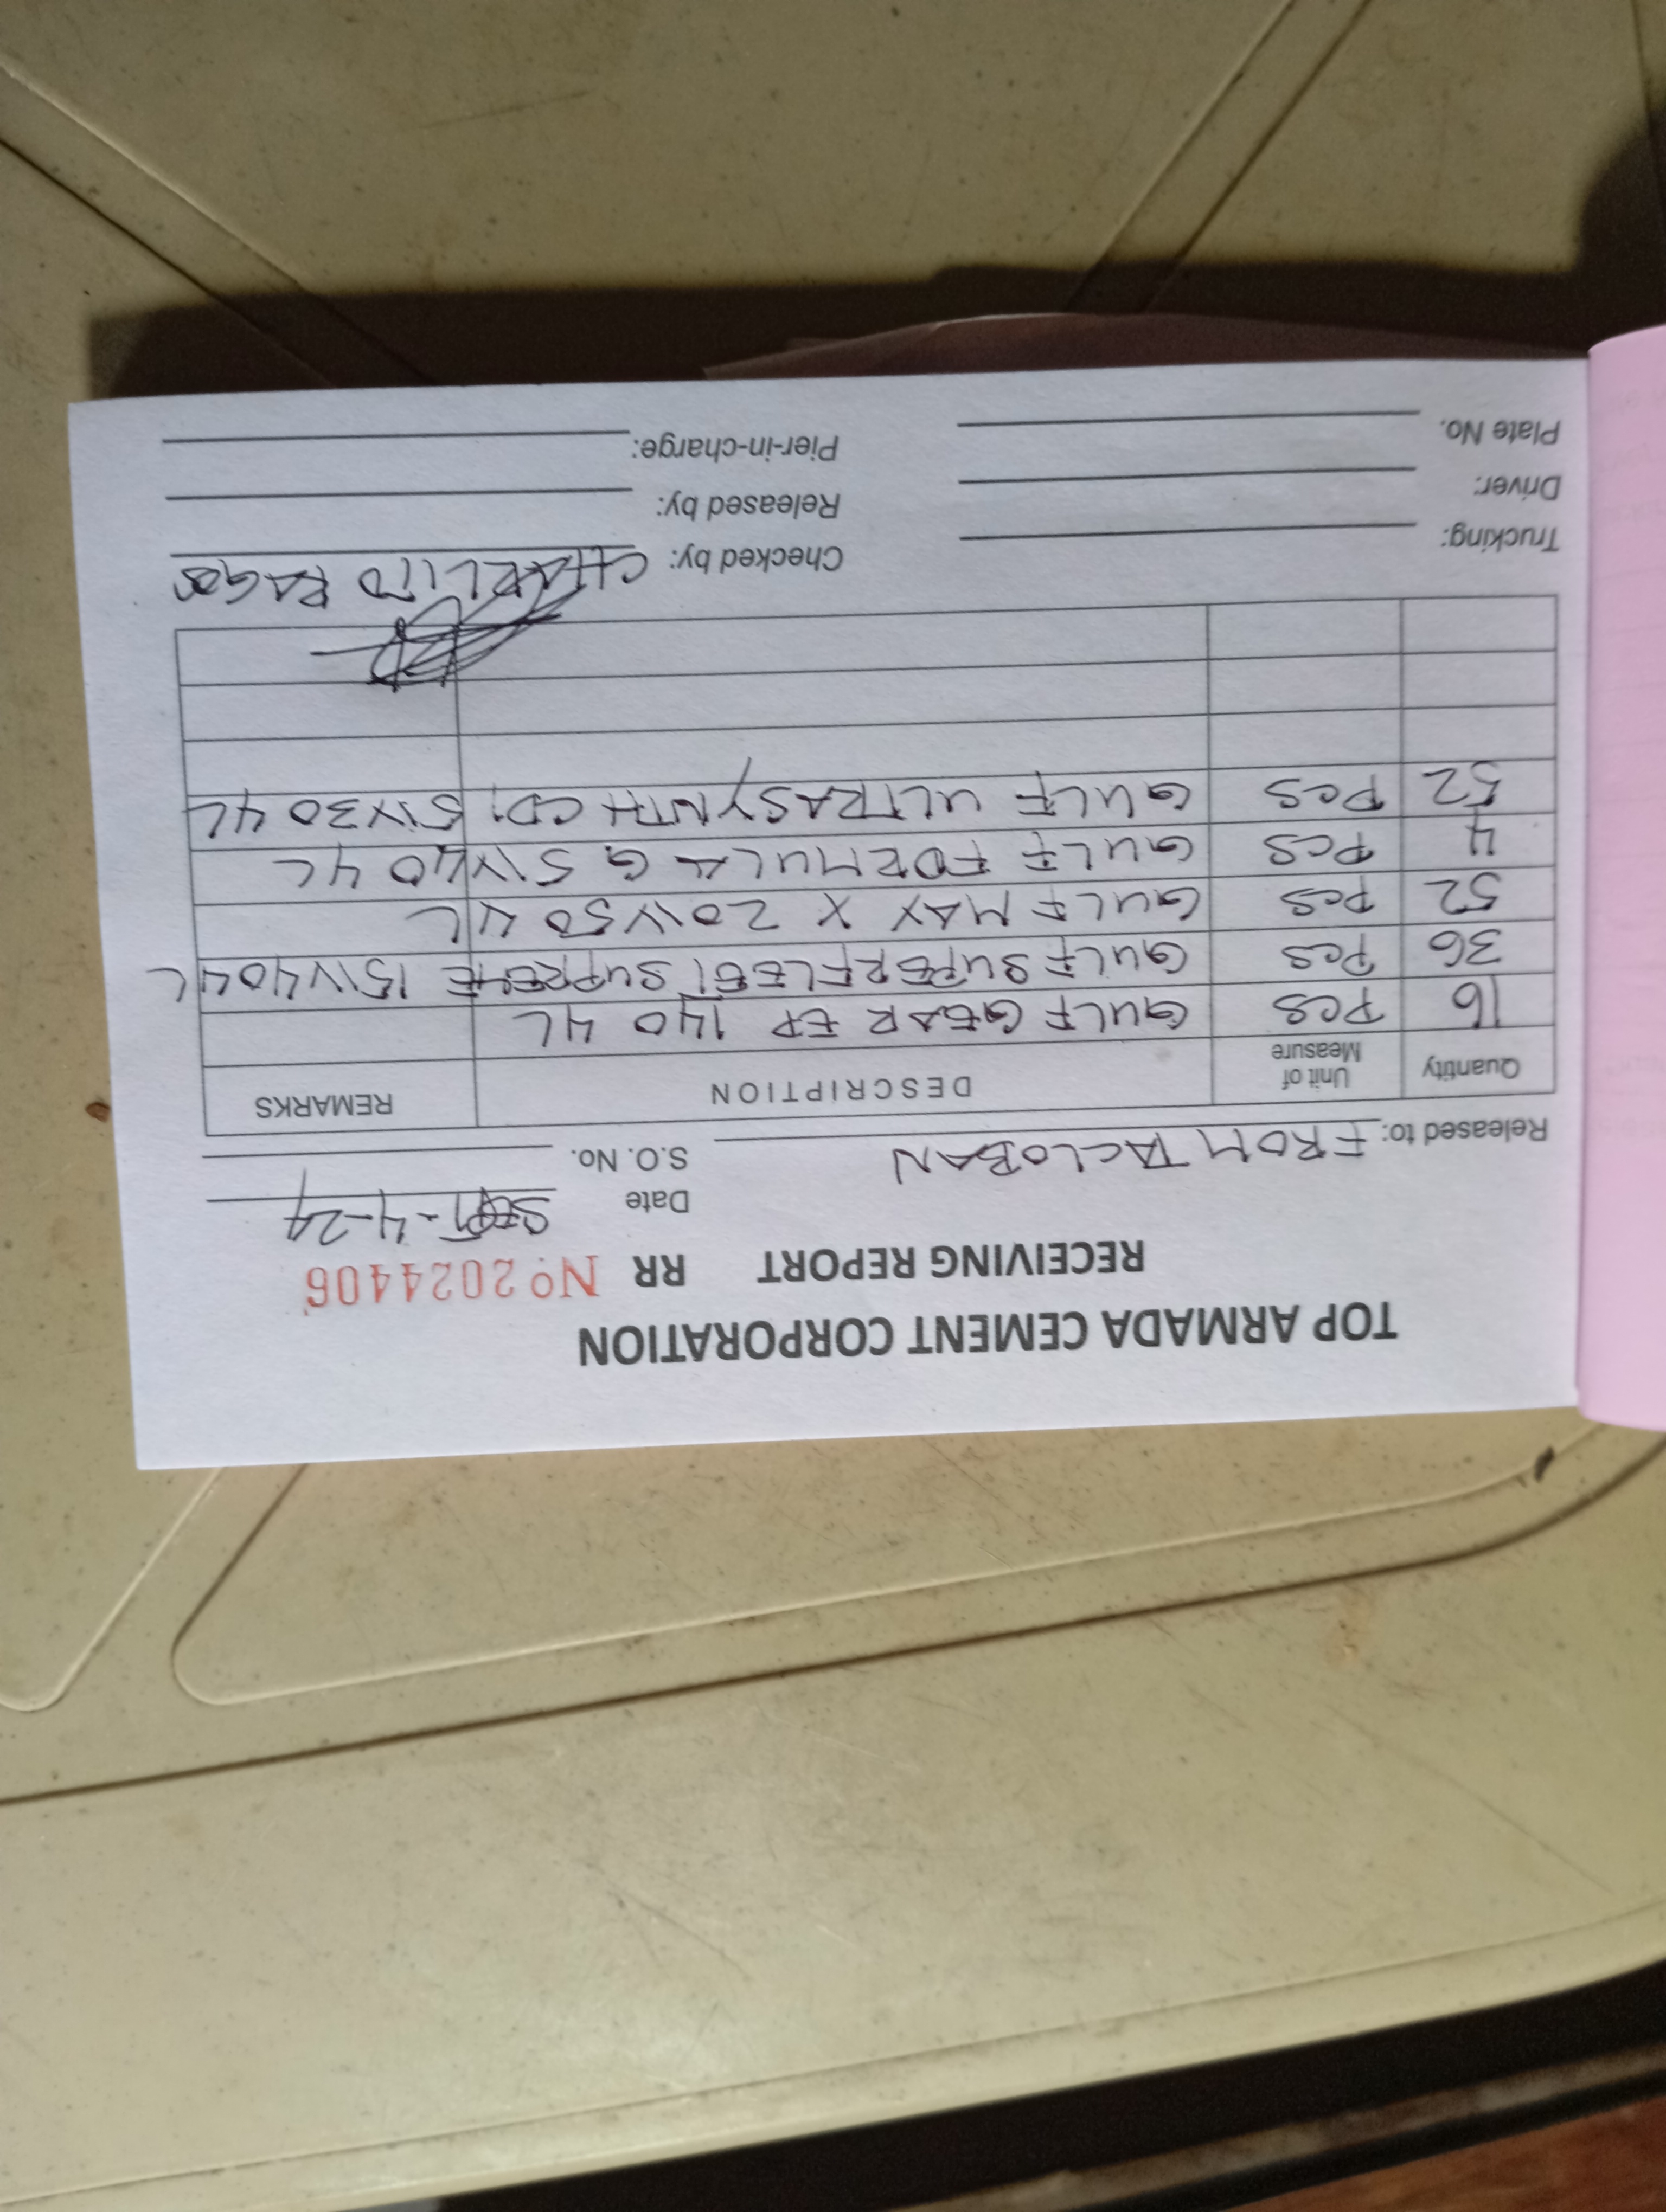 TOP ARMADA CEMENT CORPORATION
RECEIVING REPORT RR Nº 2024406
Date SEPT-4-24
Released to: FROM TACLOBAN S.O. No.
Quantity Unit of Measure DESCRIPTION REMARKS
16 PCS GULF GEAR EP 140 4L
36 PCS GULF SUPERFLEET SUPREME 15W40 4L
52 PCS GULF MAX X 20W50 4L
4 PCS GULF FORMULA G 5W40 4L
52 PCS GULF ULTRASYNTH CDI 5W30 4L
Trucking: Checked by: CHARLITO
Driver: Released by:
Plate No. Pier-in-charge: